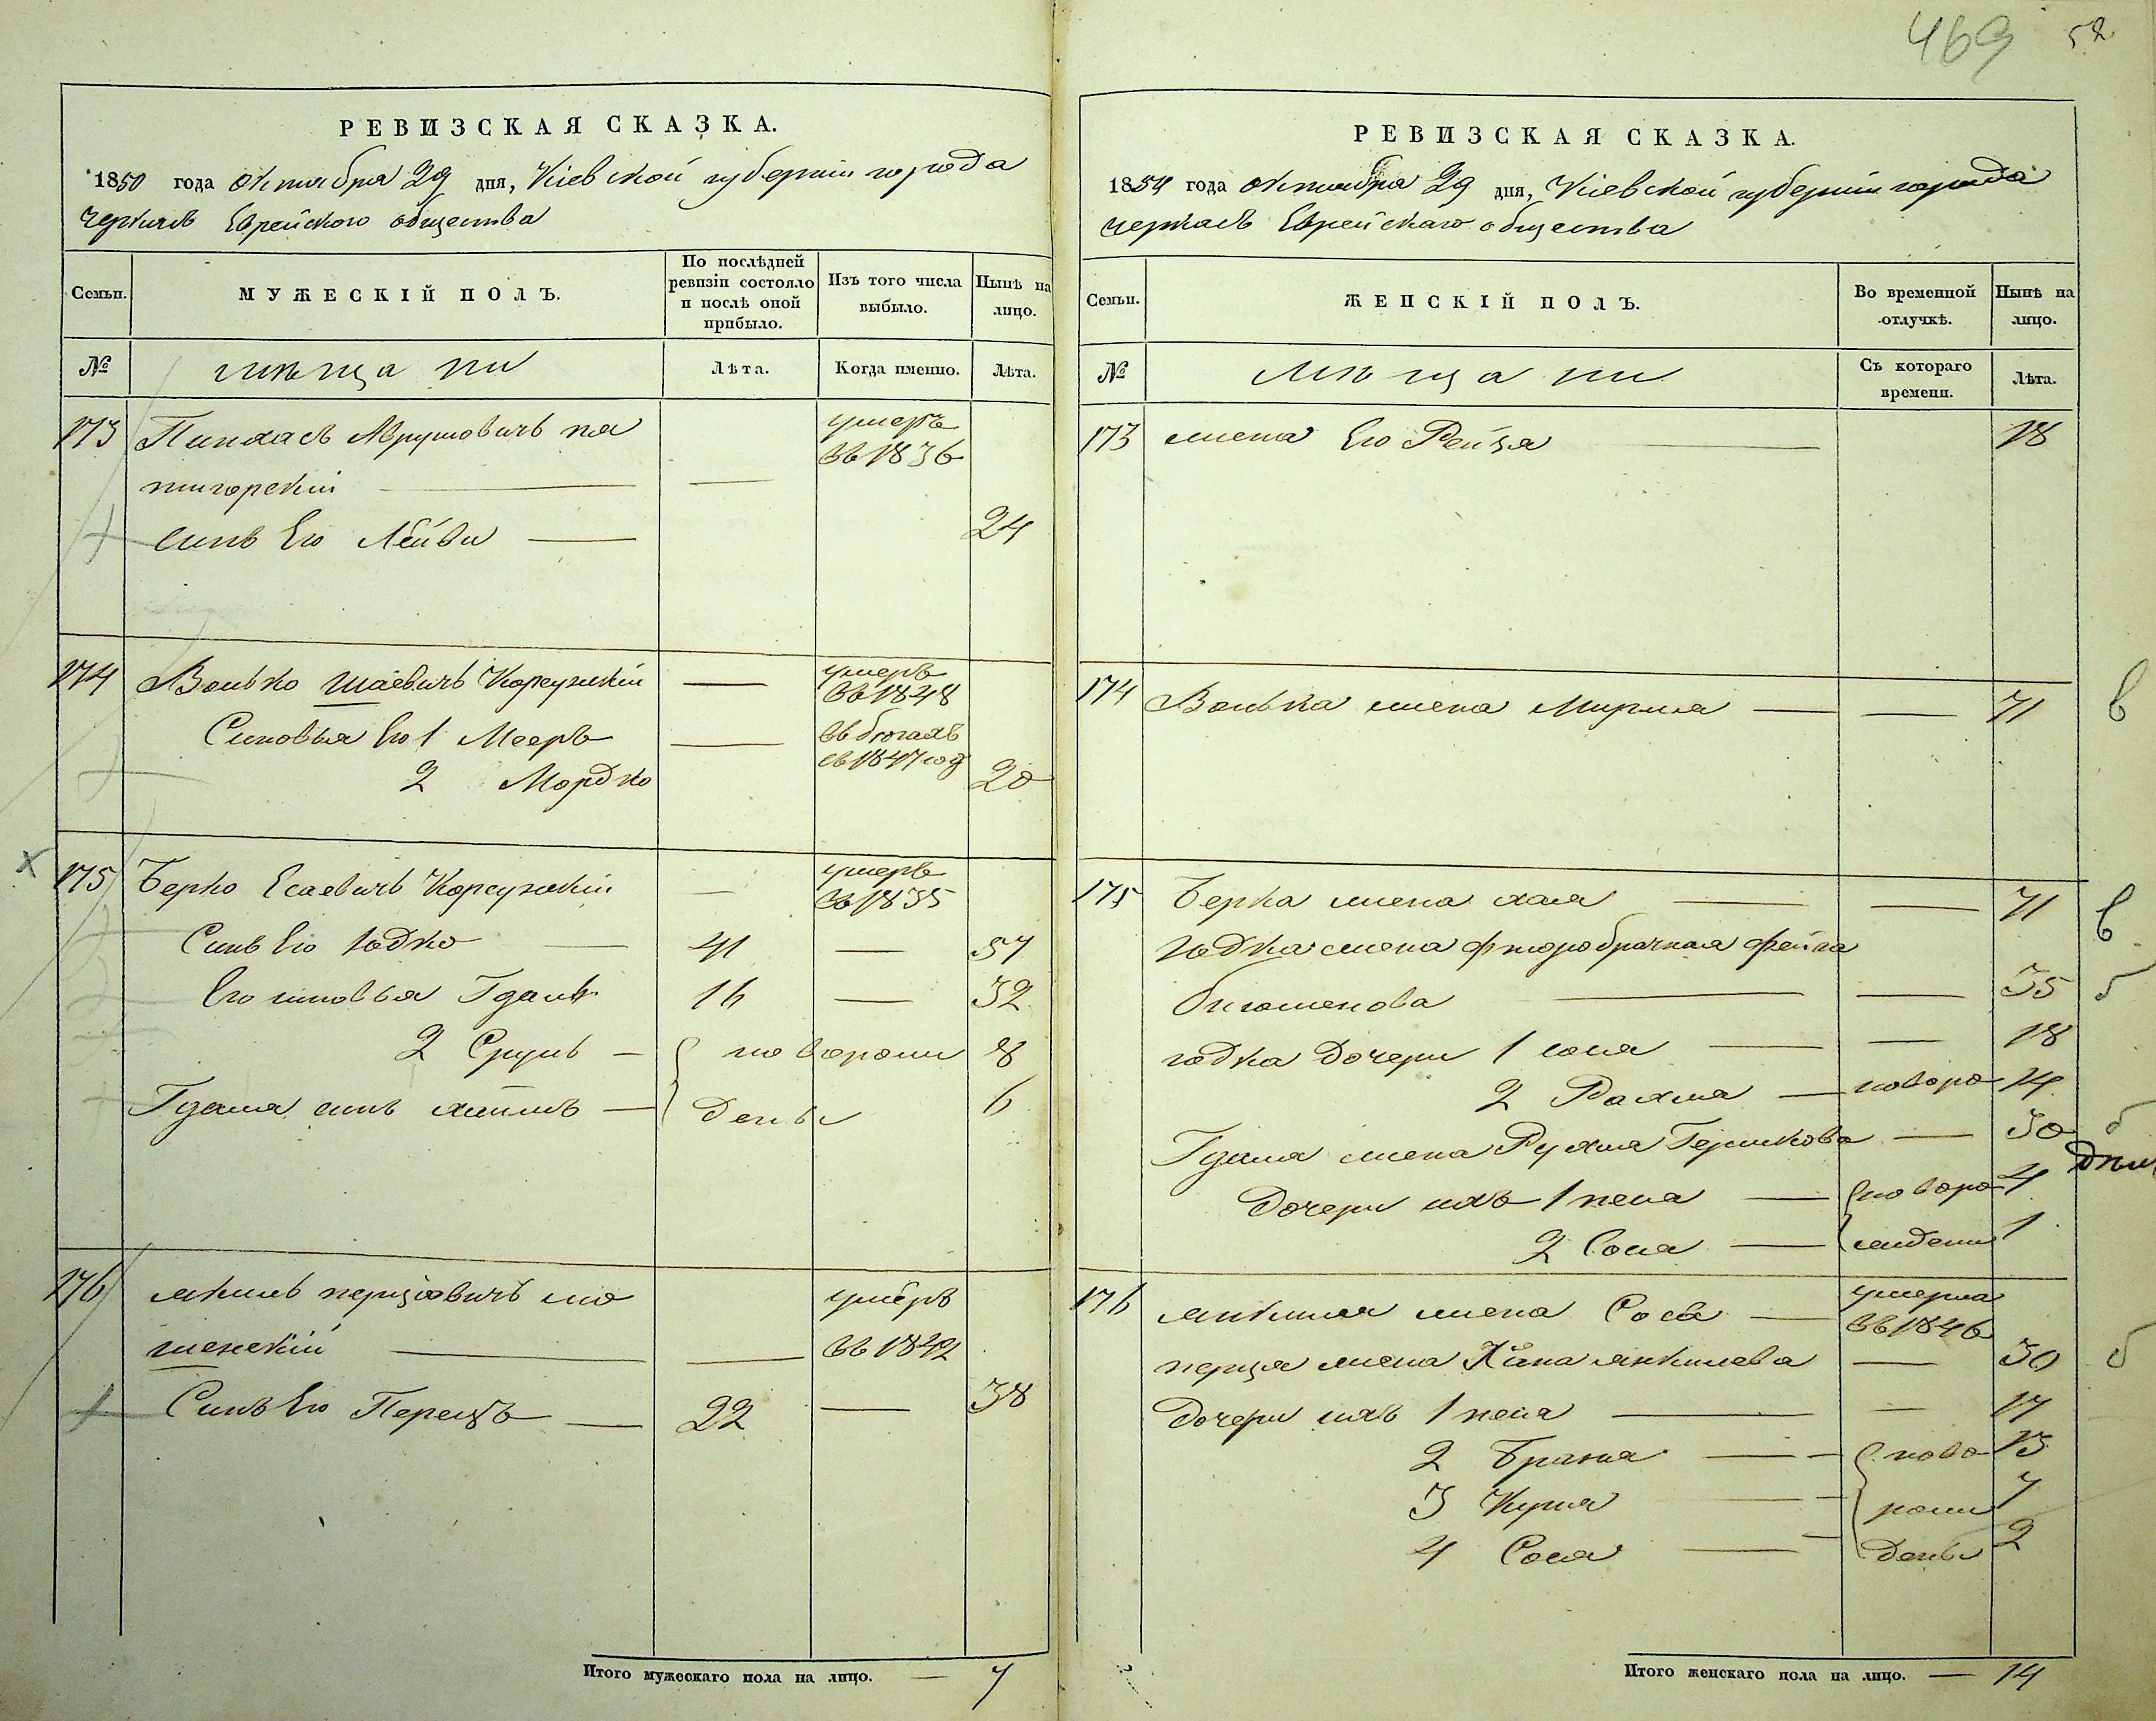 469 52
РЕВИЗСКАЯ СКАЗКА.
1850 года октября 29 дня, Кіевской губерніи города
черкасъ Еврейского общества
Семьи. МУЖЕСКІЙ ПОЛЪ. По послѣдней ревизіи состояло и послѣ оной прибыло. Изъ того числа выбыло. Нынѣ на лицо.
№ мѣщани Лѣта. Когда именно. Лѣта.
173 Пинхасъ Мрушовичъ пя умеръ въ 1836
тигорскій
синъ Его Лейви 24
174 Волько Шаевичъ Корсунскій умеръ въ 1848
Синовья Его 1 Мееръ въ бѣгахъ съ 1847 год
2 Мордко 20
175 Берко Есаевичъ Корсунскій умеръ въ 1835
Синъ Его Іодко 41 57
Его синовья Гдаль 16 32
2 Сруль новорож 8
Гдаля синъ денъ 6
176 янкель перцовичъ мо умеръ
шенскій въ 1842
Синъ Его Перецъ 22 38
Итого мужескаго пола на лицо. 7
РЕВИЗСКАЯ СКАЗКА.
1850 года октября 29 дня, Кіевской губерніи города
черкасъ Еврейскаго общества
Семьи. ЖЕНСКІЙ ПОЛЪ. Во временной отлучкѣ. Нынѣ на лицо.
№ мѣщани Съ котораго времени. Лѣта.
173 жена Его Рейзя 18
174 Волька жена Мирля 71 в
175 Берка жена хая 71 в
Іодка жена фторобрачная фейга
35 б
іодка дочери 1 соня 18
2 Рахля новоро 14
Гдаля жена Рухля Гершкова 30 б
дочери ихъ 1 песа новоро 4
2 Сося 1
176 янкеля жена Сося умерла въ 1846
перца жена Хана янкилева 30 б
дочери ихъ 1 песя 17
2 Брана ново 13
3 Куня рож 7
4 Сося денъ 2
Итого женскаго пола на лицо. 14